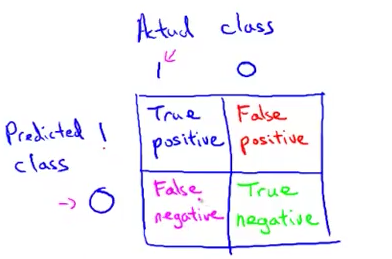 Actual class
1 0
Predicted 1
class
0
True
positive
False
positive
False
negative
True
negative